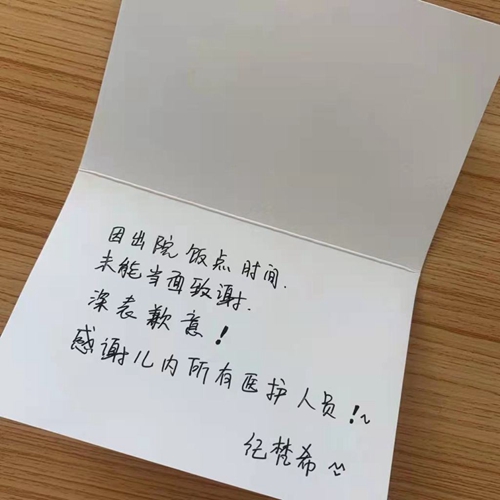 因出院饭点时间.
未能当面致谢.
深表歉意！
感谢儿内所有医护人员！~
纪梵希